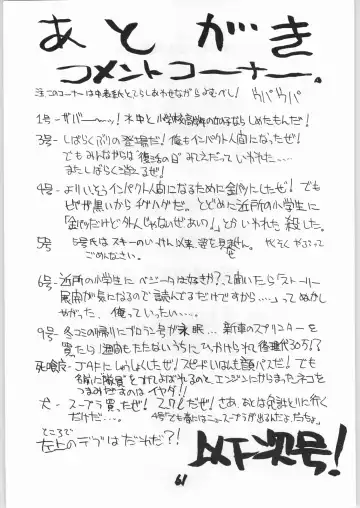 あとがき
コメントコーナー。
注)このコーナーは中表紙とてらしあわせながらよむべし! ウパウパ
3号- しばらくぶりの登場だ! 俺もインパクト人間になったぜ!
でもみんなからは「復活の日」みてえだっていわれた……
またしばらく消えるぜ!
4号- よりいっそうインパクト人間になるために金パツにしたぜ! でも
ヒゲが黒いからイケハグだ。とどめに近所の小学生に
「金パツだけど外人じゃないぜあいつ!」とかいわれた 殺した。
5号 5号氏はスキーのいけん以来、姿を見せん。代くろやぶって
ごめんなさい。
6号- 近所の小学生に ベジータは好きか?って聞いたら「ストーリー
展開が気になるので読んでるだけですから……」ってぬかし
やがった、俺っていったい……。
9号- 冬コミの帰りにプロラン号が永眠… 新車のスプリンターを
買たら1週間もたたないうちにひっかけられ修理代30万!?
死喰鬼- JAFにしゅうしょくしたぜ! スピードいはんも顔パスだ! でも
つまみだすのは イヤダ!!
犬- スープラ買ったぜ! スクしだぜ! さあ、あとは免許とりに行く
だけだ…。 4号「でも春にはニュースープラが出るんだよ、だっちょ」
ところで
左上のデブはだれだ?!
以下次号!
61